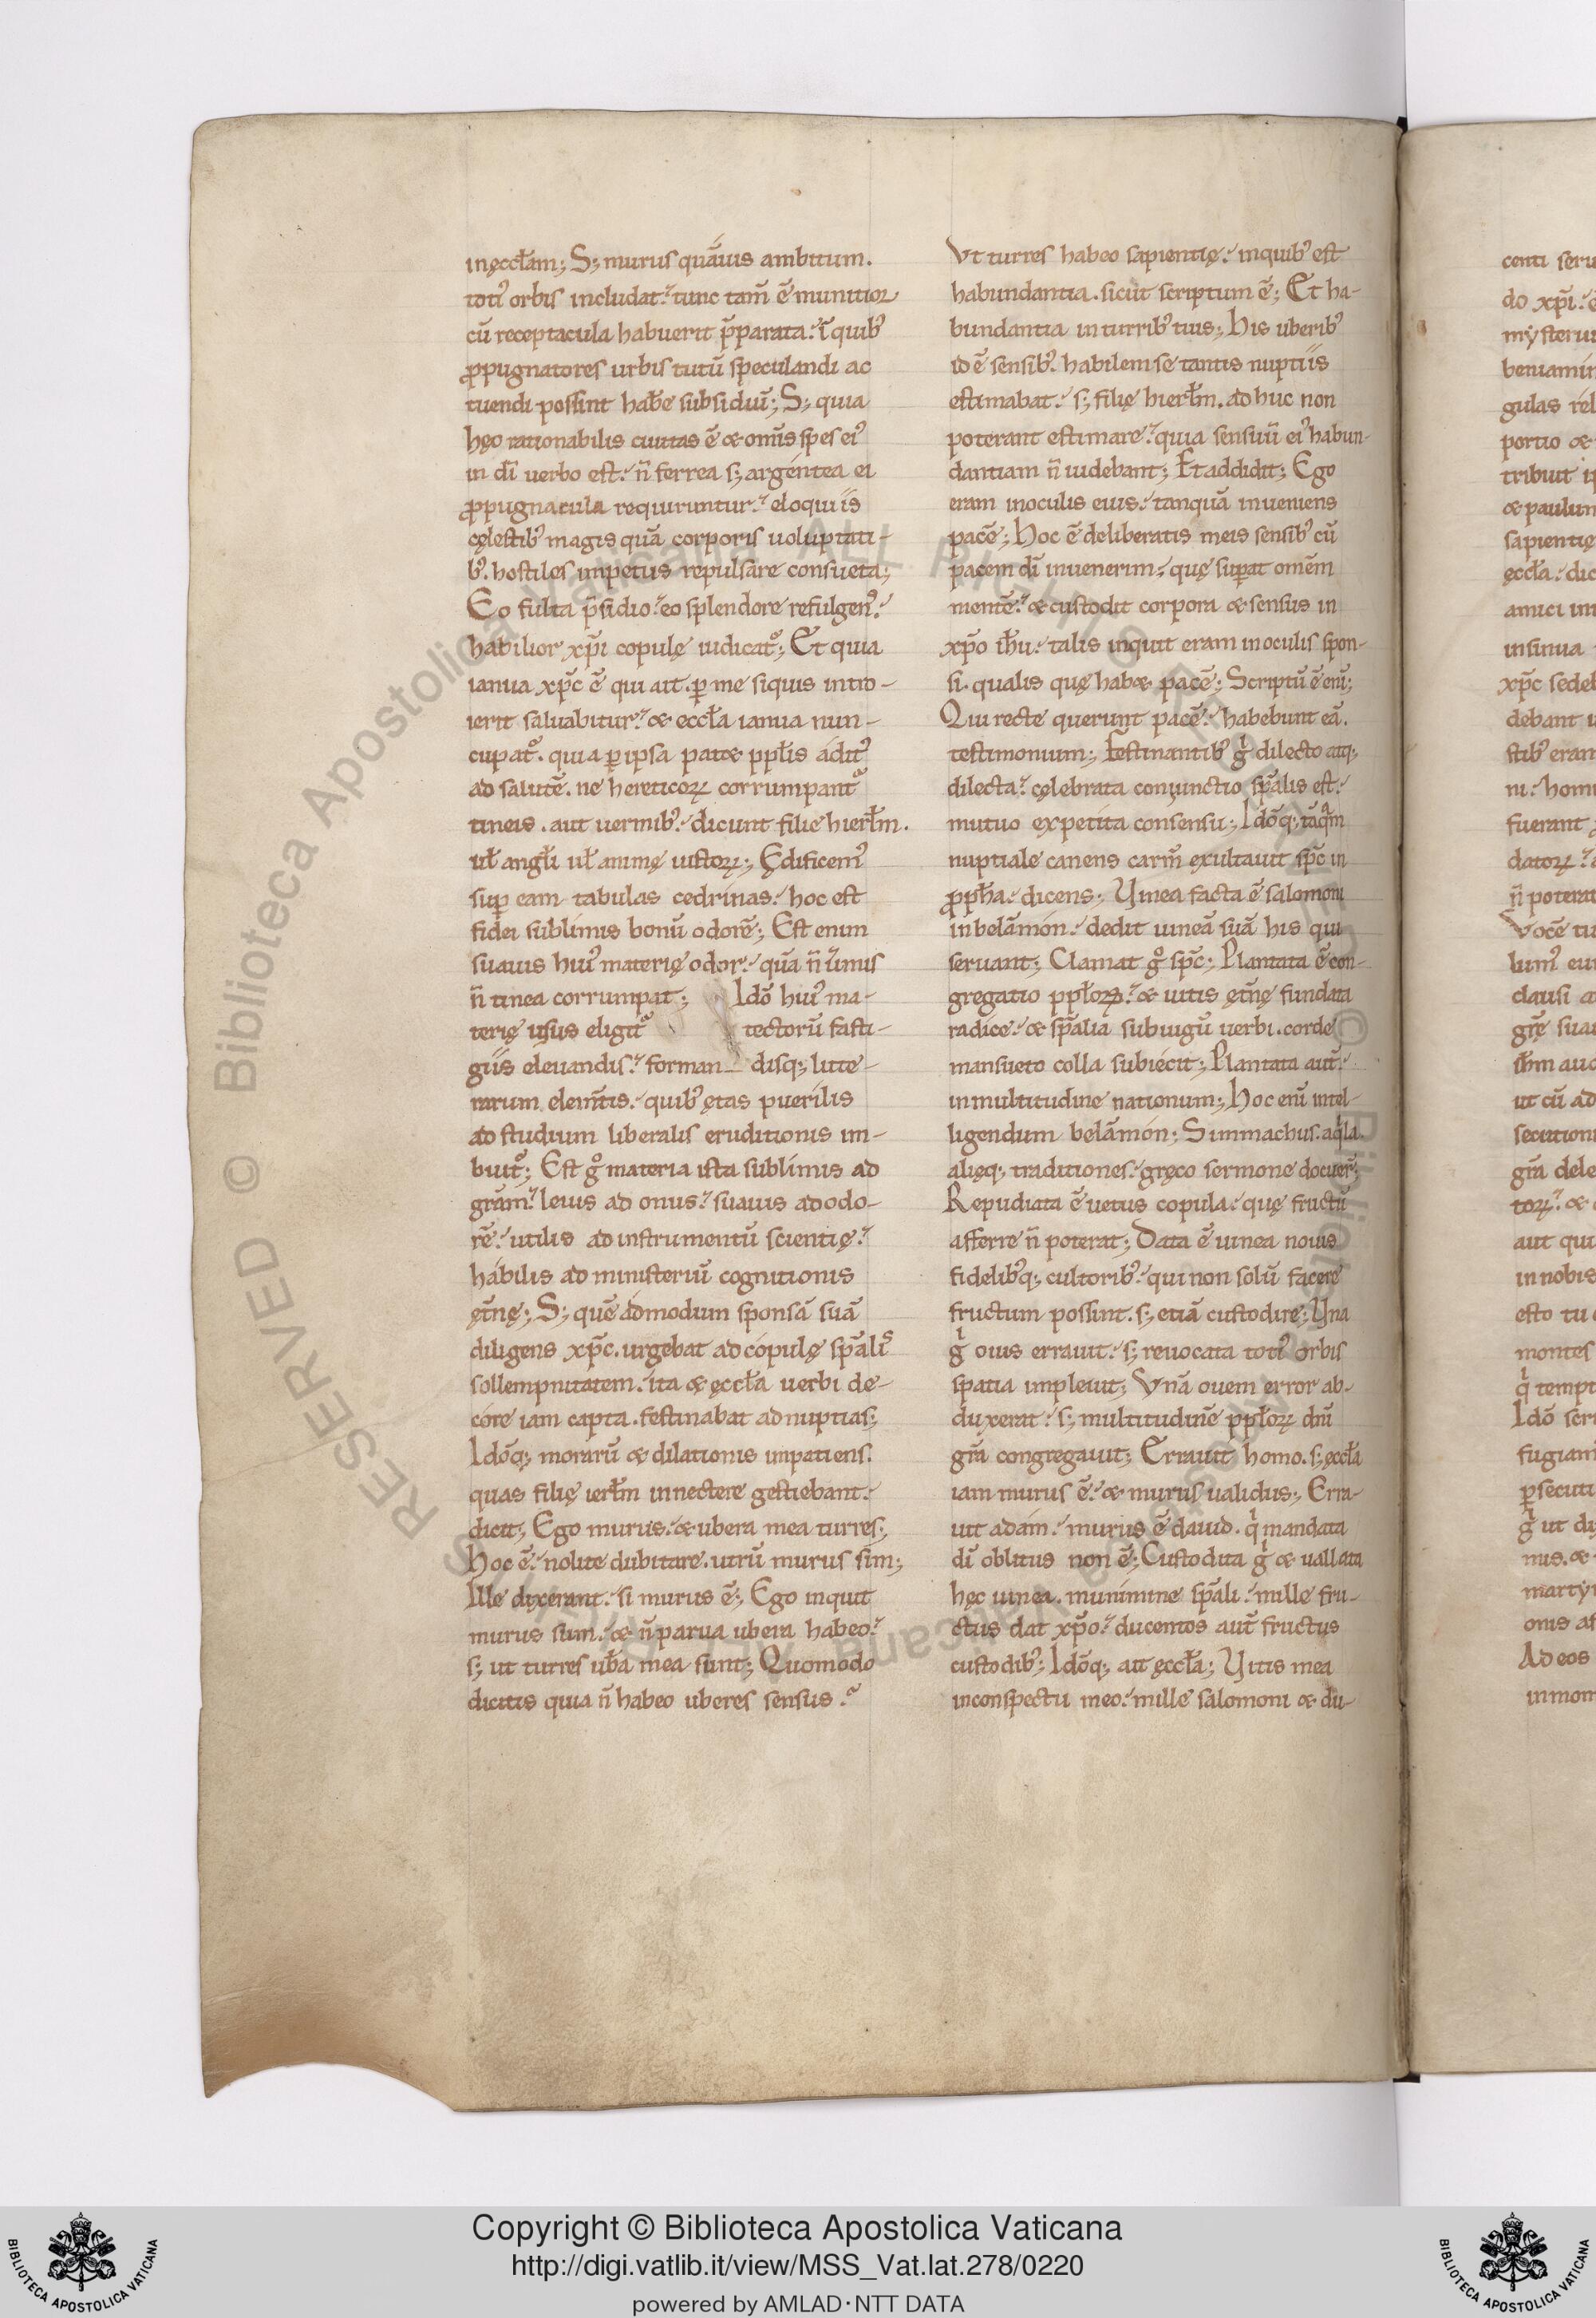 inęccłam; S; murus quāuis ambitum.
toti᾽ orbis includat. tunc tam̄ ē munitior
cū receptacula habuerit p̄parata. ī quib᾽
ꝓpugnatores urbis tutū speculandi ac
tuendi possint hab̄e subsidiū; S; quia
hęc rationabilis ciuitas ē & om̄is spes ei᾽
in dī uerbo est. n̄ ferrea s; argentea ei
ꝓpugnacula requiruntur. eloquiis
cęlestib᾽ magis quā corporis uoluptati-
b᾽. hostiles impetus repulsare consueta;
Eo fulta p̄sidio. eo splendore refulgens.
habilior xp̄i copulę iudicat᾽; Et quia
ianua xp̄c ē qui ait. ꝑ me siquis intro-
ierit saluabitur. & eccła ianua nun-
cupat᾽. quia ꝑ ipsa patet ppłis adit᾽
ad salutē. ne hereticoꝝ corrumpant᾽
tineis. aut uermib᾽. dicunt filie hierłm.
uł angłi uł animę iustoꝝ; Ędificem᾽
suꝑ eam tabulas cedrinas. hoc est
fidei sublimis bonū odorē; Est enim
suauis hui᾽ materię odor. quā n̄ uermis
n̄ tinea corrumpat; Idō hui᾽ ma-
terię usus eligit᾽ tectorū fasti-
giis eleuandis. forman disq; litte-
rarum elem̄tis. quib᾽ ętas puerilis
ad studium liberalis eruditionis im-
buit᾽; Est gº materia ista sublimis ad
grām. leuis ad onus. suauis ad odo-
rē. utilis ad instrumentū scientię.
habilis ad ministeriū cognitionis
ęt̄nę; S; quē admodum sponsā suā
diligens xp̄c. urgebat ad copulę sp̄alis
sollempnitatem. ita & ęccła uerbi de-
core iam capta. festinabat ad nuptias;
Idōq; morarū & dilationis impatiens.
quas filię ierłm innectere gestiebant.
dicit; Ego murus. & ubera mea turres;
Hoc ē. nolite dubitare. utrū murus sim;
Ille dixerant. si murus ē; Ego inquit
murus sum. & n̄ parua ubera habeo.
s; ut turres ub̄a mea sunt; Quomodo
dicitis quia n̄ habeo uberes sensus.
Vt turres habeo sapientię. inquib᾽ est
habundantia. sicut scriptum ē; Et ha-
bundantia in turrib᾽ tuis; His uberib᾽
id ē sensib᾽. habilem se tantis nuptiis
estimabat. s; filię hierłm. ad huc non
poterant estimare. quia sensuū ei᾽ habun-
dantiam n̄ uidebant; Et addidit; Ego
eram inoculis eius. tanquā inueniens
pacē; Hoc ē deliberatis meis sensib᾽ cū
pacem dī inuenerim. quę suꝑat omēm
mentē. & custodit corpora & sensus in
xp̄o ihu. talis inquit eram inoculis spon-
si. qualis quę habet pacē; Scriptū ē eni;
Qui recte querunt pacē. habebunt eā.
testimonium; Festinantib᾽ g dilecto atq;
dilecta. cęlebrata coniunctio sp̄alis est.
mutuo expetita consensu; Idōq; tāqm
nuptiale canens carm̄ exultauit sp̄c in
ꝓpha. dicens; Vinea facta ē salomoni
in belāmon. dedit uineā suā his qui
seruant; Clamat gº sp̄c; Plantata ē con-
gregatio ppłoꝝ. & uitis ęt̄nę fundata
radice. & sp̄alia subiugū uerbi. corde
mansueto colla subiecit; Plantata aut̄.
in multitudine nationum; Hoc enī intel-
ligendum belāmon; Simmachus. aqla.
alięq; traditiones. gręco sermone docuer̄;
Repudiata ē uetus copula. quę fructū
afferre n̄ poterat; Data ē uinea nouis
fidelib᾽q; cultorib᾽. qui non solū facere
fructum possint. s; etiā custodire; Vna
g ouis errauit. s; reuocata toti᾽ orbis
spatia impleuit; Vnā ouem error ab-
duxerat. s; multitudinē ppłoꝝ dn̄i
gr̄a congregauit; Errauit homo. s; ęccła
iam murus ē. & murus ualidus; Erra-
uit adam. murus ē dauid. q mandata
dī oblitus non ē; Custodita g & uallata
hęc uinea. munimine sp̄ali. mille fru-
ctus dat xp̄o. ducentos aut̄ fructus
custodib᾽; Idōq; ait ęccła; Vitis mea
inconspectu meo. mille salomoni & du-
Copyright © Biblioteca Apostolica Vaticana
http://digi.vatlib.it/view/MSS_Vat.lat.278/0220
powered by AMLAD·NTT DATA
BIBLIOTECA APOSTOLICA VATICANA
BIBLIOTECA APOSTOLICA VATICANA